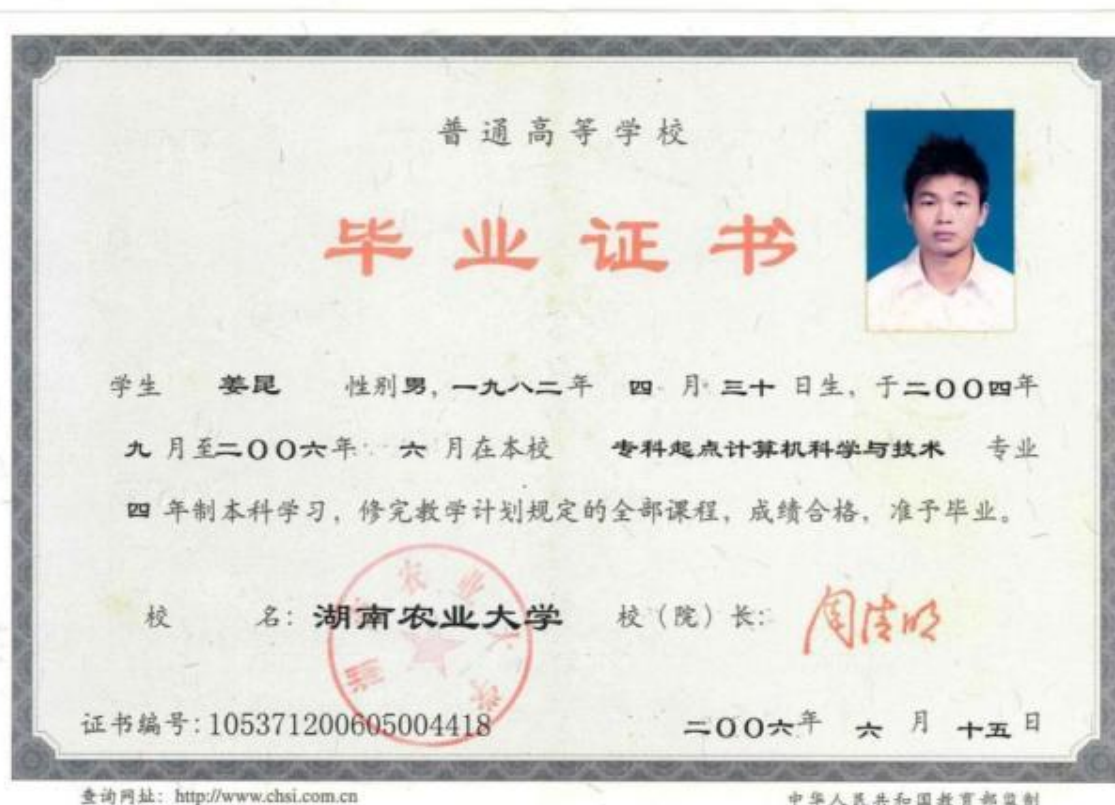 普通高等学校
毕业证书
学生 姜昆 性别男，一九八二年 四 月 三十 日生，于二〇〇四年
九 月至二〇〇六年 六 月在本校 专科起点计算机科学与技术 专业
四 年制本科学习，修完教学计划规定的全部课程，成绩合格，准予毕业。
校 名：湖南农业大学 校（院）长：周清明
证书编号：105371200605004418 二〇〇六年 六 月 十五 日
查询网址：http://www.chsi.com.cn 中华人民共和国教育部监制